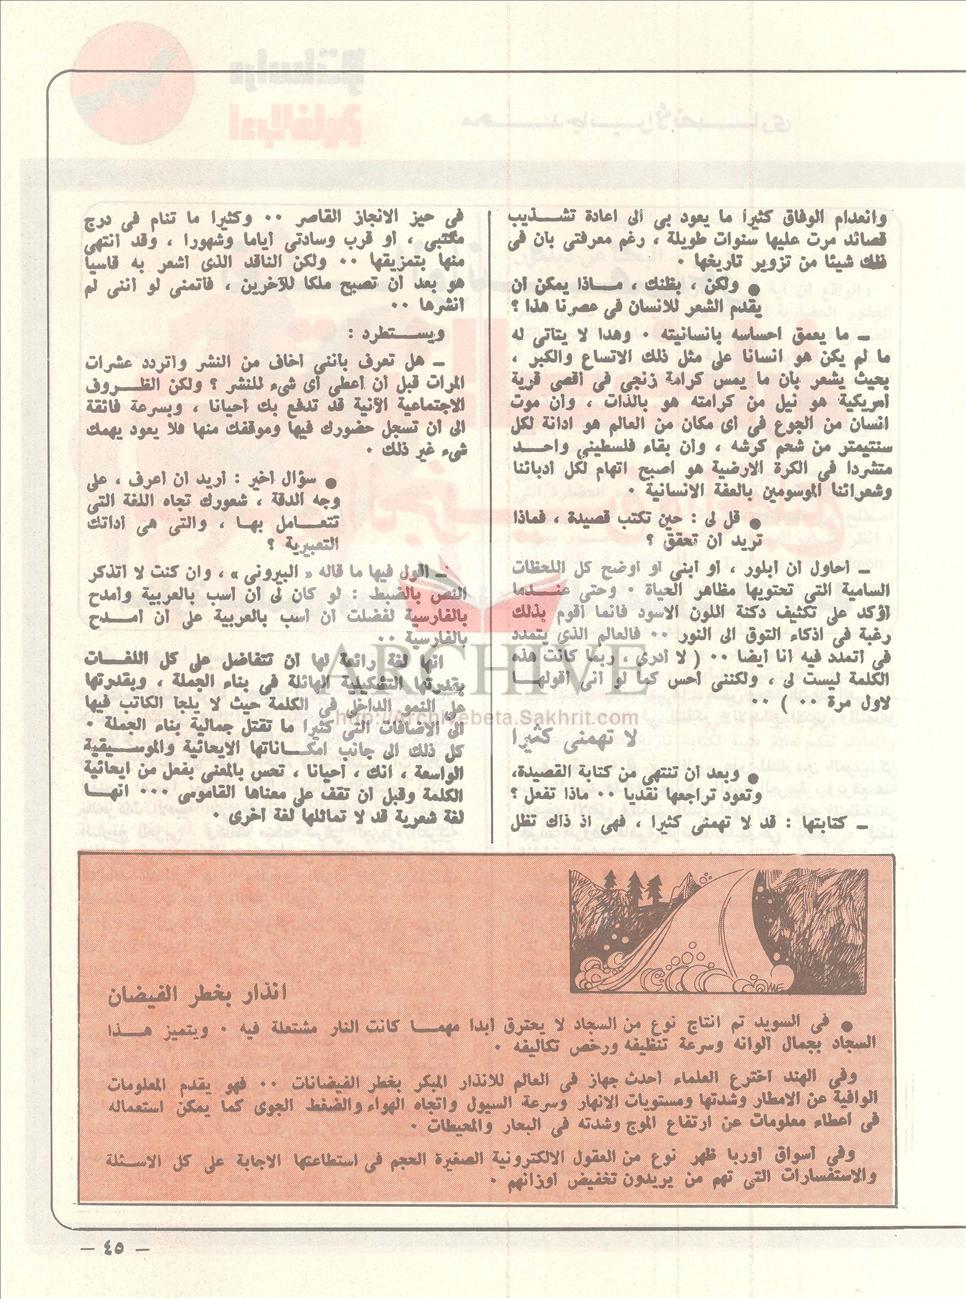 وانعدام الوفاق كثيرا ما يعود بى الى اعادة تشــذيب
قصائد مرت عليها سنوات طويلة ، رغم معرفتى بان فى
ذلك شيئا من تزوير تاريخها ٠
● ولكن ، بظنك ، مــاذا يمكن ان
يقدم الشعر للانسان فى عصرنا هذا ؟
ــ ما يعمق احساسه بانسانيته ٠ وهذا لا يتاتى له
ما لم يكن هو انسانا على مثل ذلك الاتساع والكبر ،
بحيث يشعر بان ما يمس كرامة زنجي فى اقصى قرية
امريكية هو نيل من كرامته هو بالذات ، وان موت
انسان من الجوع فى اى مكان من العالم هو ادانة لكل
سنتيمتر من شحم كرشه ، وان بقاء فلسطيني واحــد
متشردا فى الكرة الارضية هو اصبح اتهام لكل ادبائنا
وشعرائنا الموسومين بالعفة الانسانية ٠
● قل لى : حين تكتب قصيدة ، فماذا
تريد ان تحقق ؟
ــ احاول ان ابلور ، او ابنى او اوضح كل اللحظات
السامية التى تحتويها مظاهر الحياة ٠ وحتى عنــدما
اؤكد على تكثيف دكنة اللون الاسود فانما اقوم بذلك
رغبة فى اذكاء التوق الى النور ٠٠ فالعالم الذى يتمدد
فى اتمدد فيه انا ايضا ٠٠ ( لا ادرى ، ربما كانت هذه
الكلمة ليست لى ، ولكننى احس كما لو انى اقولهــا
لاول مرة ٠٠ ) ٠٠
لا تهمنى كثيرا
● وبعد ان تنتهي من كتابة القصيدة،
وتعود تراجعها نقديا ٠٠ ماذا تفعل ؟
ــ كتابتها : قد لا تهمنى كثيرا ، فهى اذ ذاك تظل
فى حيز الانجاز القاصر ٠٠ وكثيرا ما تنام فى درج
مكتبى ، او قرب وسادتى اياما وشهورا ، وقد انتهى
منها بتمزيقها ٠٠ ولكن الناقد الذى اشعر به قاسيا
هو بعد ان تصبح ملكا للآخرين ، فاتمنى لو اننى لم
انشرها ٠٠
ويســتطرد :
ــ هل تعرف باننى اخاف من النشر واتردد عشرات
المرات قبل ان اعطى اى شىء للنشر ؟ ولكن الظــروف
الاجتماعية الآنية قد تدفع بك احيانا ، وبسرعة فائقة
الى ان تسجل حضورك فيها وموقفك منها فلا يعود يهمك
شىء غير ذلك ٠
● سؤال اخير : اريد ان اعرف ، على
وجه الدقة ، شعورك تجاه اللغة التى
تتعــامل بهــا ، والتى هى اداتك
التعبيرية ؟
ــ اقول فيها ما قاله « البيرونى » ، وان كنت لا اتذكر
النص بالضبط : لو كان لى ان اسب بالعربية وامدح
بالفارسية لفضلت ان اسب بالعربية على ان امــدح
بالفارسية ٠٠
انها لغة رائعة لها ان تتفاضل على كل اللغــات
بقدرتها التشكيلية الهائلة فى بناء الجملة ، وبقدرتها
على النمو الداخلى فى الكلمة حيث لا يلجا الكاتب فيها
الى الاضافات التى كثيرا ما تقتل جمالية بناء الجملة ٠
كل ذلك الى جانب امكــاناتها الايحائية والموســيقية
الواسعة ، انك ، احيانا ، تحس بالمعنى بفعل من ايحائية
الكلمة وقبل ان تقف على معناها القاموسى ٠٠٠ انهــا
لغة شعرية قد لا تماثلها لغة اخرى ٠
ARCHIVE
http://Archivebeta.Sakhrit.com
انذار بخطر الفيضان
● فى السويد تم انتاج نوع من السجاد لا يحترق ابدا مهمــا كانت النار مشتعلة فيه ٠ ويتميز هــذا
السجاد بجمال الوانه وسرعة تنظيفه ورخص تكاليفه ٠
وفى الهند اخترع العلماء احدث جهاز فى العالم للانذار المبكر بخطر الفيضانات ٠٠ فهو يقدم المعلومات
الوافية عن الامطار وشدتها ومستويات الانهار وسرعة السيول واتجاه الهواء والضغط الجوى كما يمكن استعماله
فى اعطاء معلومات عن ارتفاع الموج وشدته فى البحار والمحيطات ٠
وفى اسواق اوربا ظهر نوع من العقول الالكترونية الصغيرة الحجم فى استطاعتها الاجابة على كل الاسئلة
والاستفسارات التى تهم من يريدون تخفيض اوزانهم ٠
ــ ٤٥ ــ